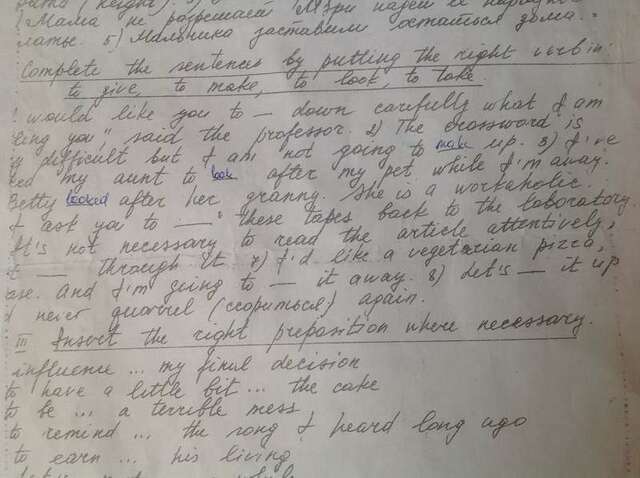 (height).
(Мама не разрешает Мэри
латье. 5) Мальчика заставили остаться дома.
Complete the sentences by putting the right verb in:
to give, to make, to look, to take.
I would like you to — down carefully what I am
ling you", said the professor. 2) The crossword is
difficult but I am not going to make up. 3) I've
ked my aunt to look after my pet while I'm away.
Betty looked after her granny. She is a workaholic.
I ask you to — these tapes back to the laboratory.
It's not necessary to read the article attentively,
— through it 7) I'd like a vegetarian pizza,
ase. And I'm going to — it away. 8) Let's — it up
d never quarrel (ссориться) again.
III Insert the right preposition where necessary.
influence ... my final decision
to have a little bit ... the cake
to be ... a terrible mess
to remind ... the song I heard long ago
to earn ... his living